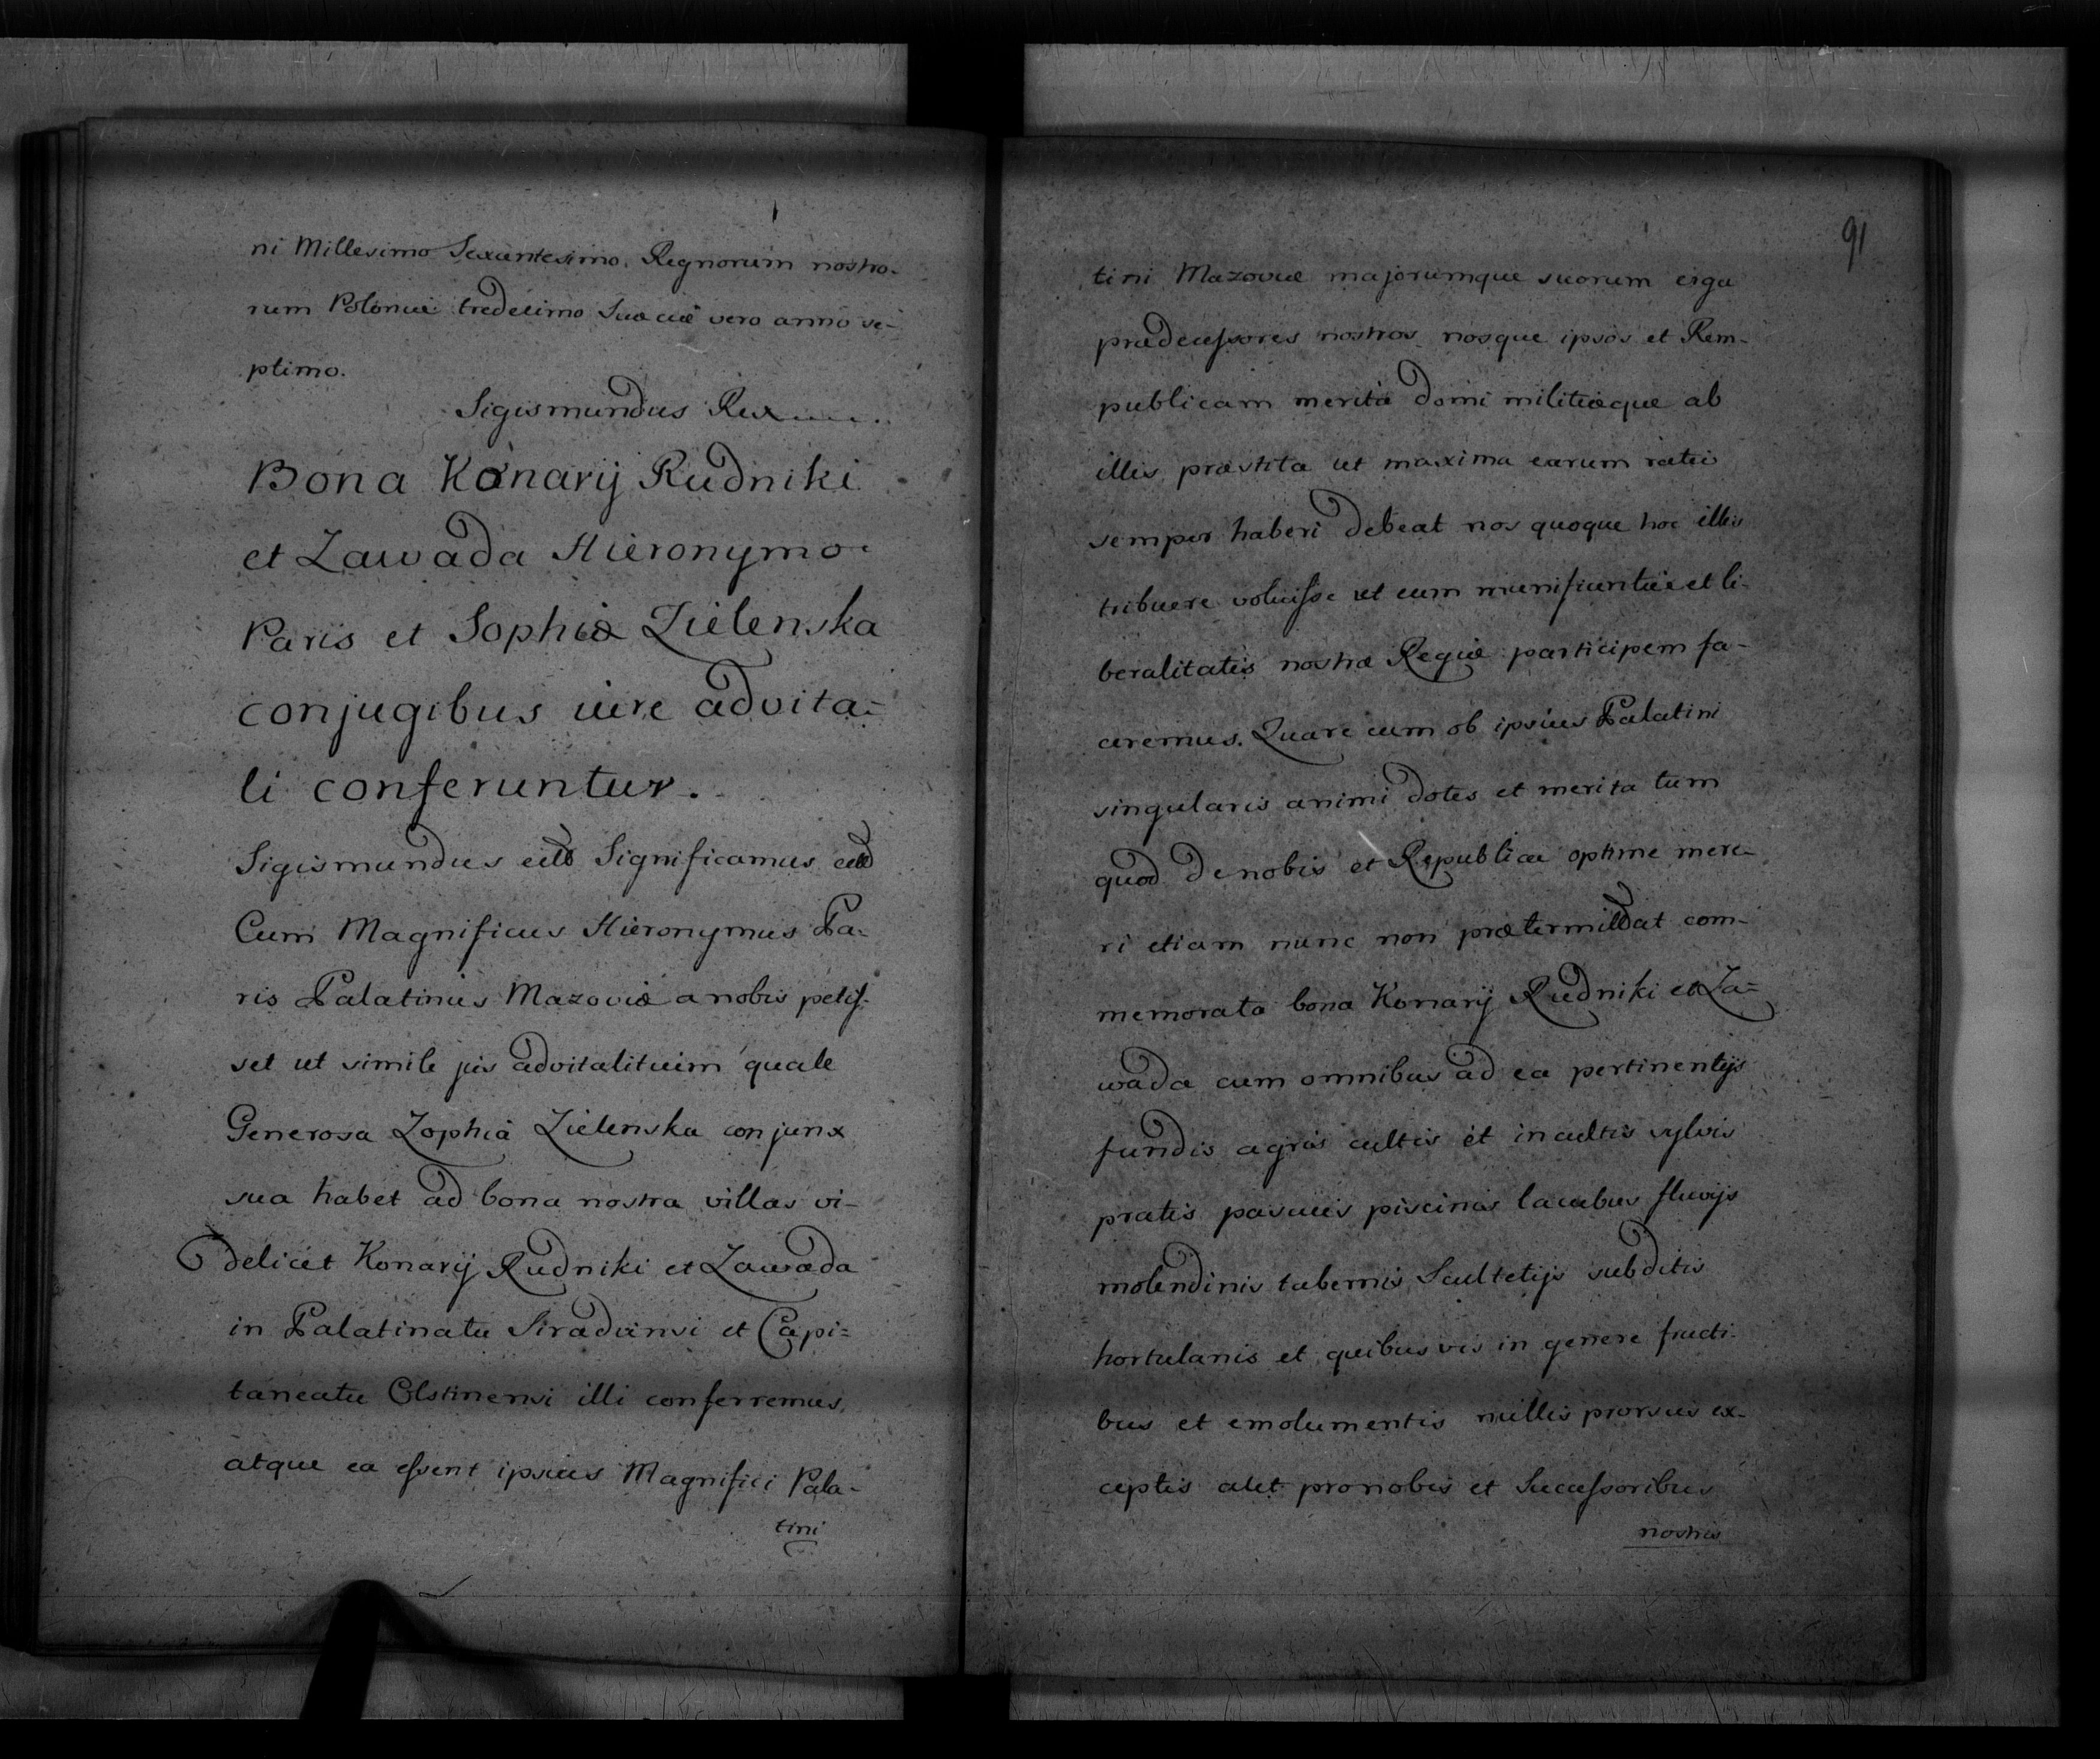 ni Millesimo Sexcentesimo. Regnorum nostro-
rum Poloniæ tredecimo Sueciæ vero anno se-
ptimo.
Sigismundus Rex
Bona Konarÿ Rudniki
et Zawada Hieronymo
Paris et Sophiæ Zielenska
conjugibus iure advita=
li conferuntur.
Sigismundus Significamus
Cum Magnificus Hieronymus Pa-
ris Palatinus Mazoviæ a nobis petis-
set ut simile jus advitalituim quale
Generosa Zophia Zielenska conjunx
sua habet ad bona nostra villas vi-
delicet Konarÿ Rudniki et Zawada
in Palatinatu Siradiensi et Capi=
taneatu Olstinensi illi conferremus,
atque ea essent ipsius Magnifici Pala-
tini
91
tini Mazoviæ majorumque suorum erga
prædecessores nostros nosque ipsos et Rem-
publicam merita domi militiæque ab
illis præstita ut maxima earum ratio
semper haberi debeat nos quoque hoc illis
tribuere voluisse ut eum munificentiæ et li-
beralitatis nostræ Regiæ participem fa-
ceremus. Quare cum ob ipsius Palatini
singularis animi dotes et merita tum
quod de nobis et Republica optime mere-
ri etiam nunc non prætermittat com-
memorata bona Konarÿ Rudniki et Za=
wada cum omnibus ad ea pertinentÿs
fundis agris cultis et incultis sylvis
pratis pascuis piscinis lacubus fluvÿs
molendinis tabernis, Scultetÿs subditis
hortulanis et quibusvis in genere fructi-
bus et emolumentis nullis prorsus ex-
ceptis pro nobis et Successoribus
nostris